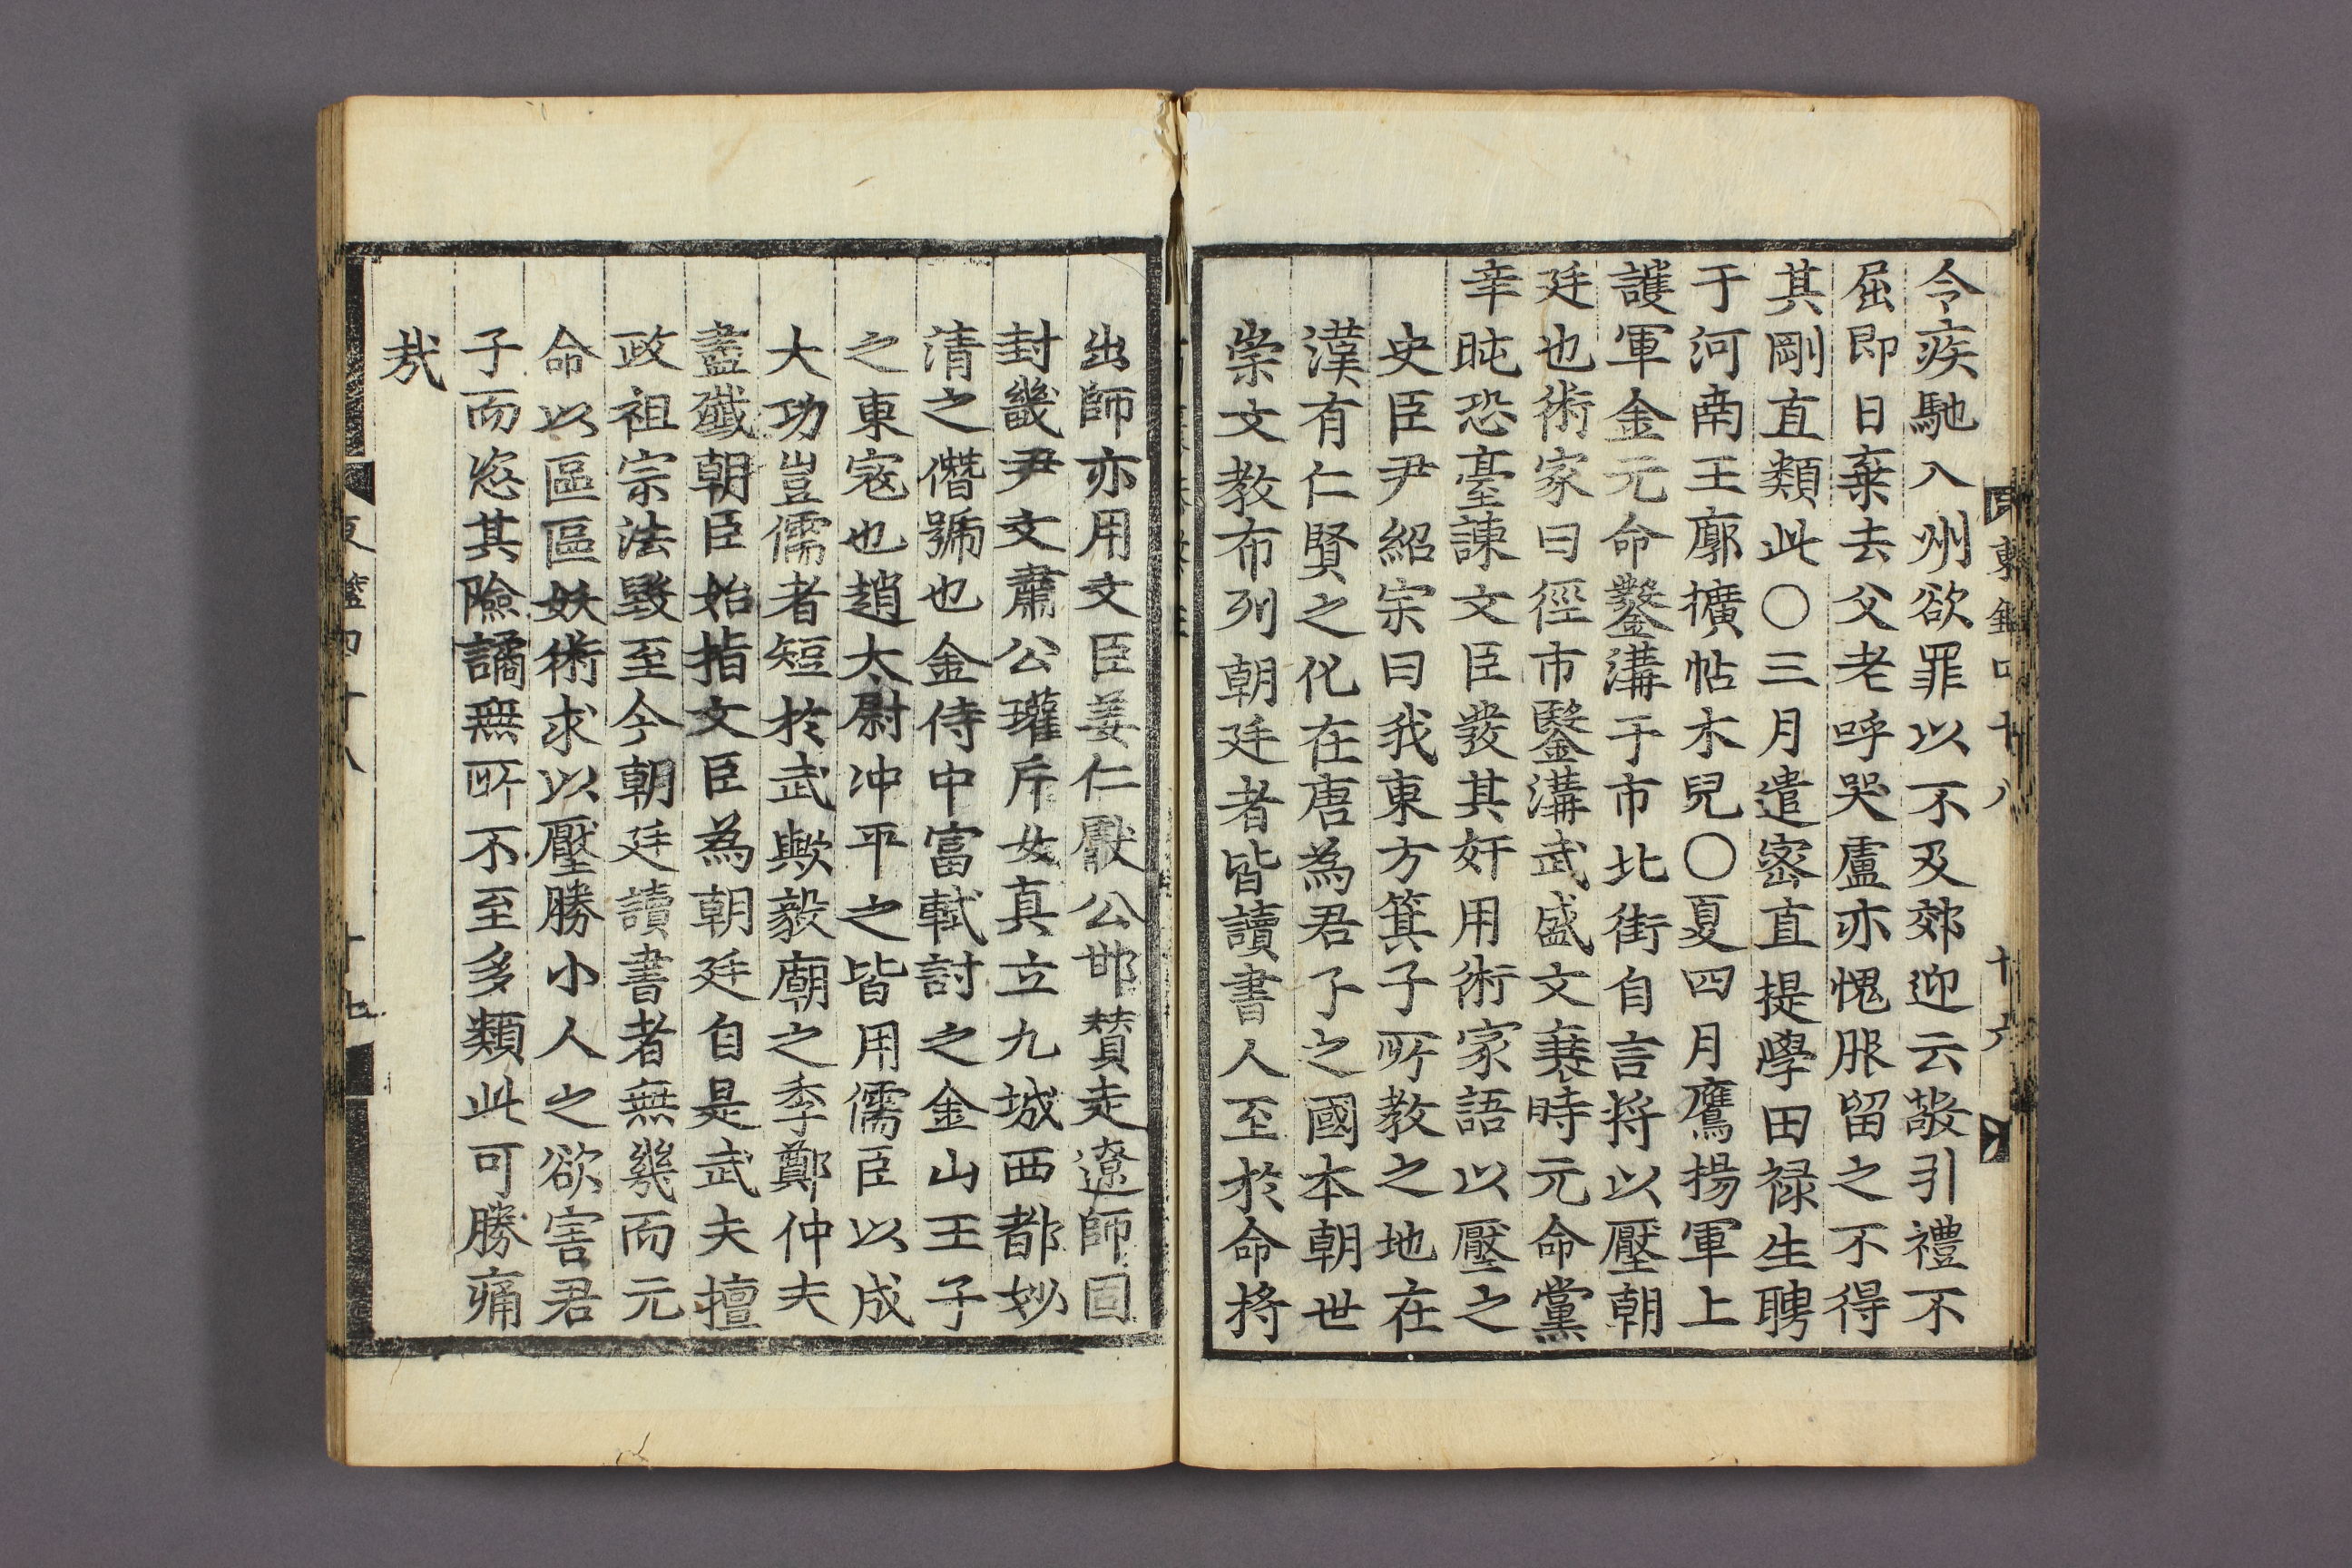 令疾馳入州欲罪以不及郊迎云敬引禮不
屈即日棄去父老呼哭盧亦愧服留之不得
其剛直類此〇三月遣密直提學田禄生聘
于河南王廓擴帖木兒〇夏四月鷹揚軍上
護軍金元命鑿溝于市北街自言将以壓朝
廷也術家曰徑市鑿溝武盛文衰時元命黨
幸旽恐臺諫文臣發其奸用術家語以壓之
史臣尹紹宗曰我東方箕子所教之地在
漢有仁賢之化在唐為君子之國本朝世
崇文教布列朝廷者皆讀書人至於命将
出師亦用文臣姜仁獻公邯賛走遼師固
封畿尹文肅公瓘斥女真立九城西都妙
清之僭號也金侍中富軾討之金山王子
之東寇也趙太尉冲平之皆用儒臣以成
大功豈儒者短於武歟毅廟之季鄭仲夫
盡殲朝臣始指文臣為朝廷自是武夫擅
政祖宗法毀至今朝廷讀書者無幾而元
命以區區妖術求以壓勝小人之欲害君
子而恣其險譎無所不至多類此可勝痛
㢤